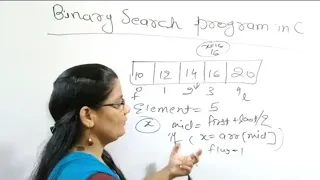 Binary Search program in C
x=16
16
10 12 14 16 20
f 1 2 3 4
Element = 5
x mid = first + last/2
if ( x = arr[mid])
flag=1